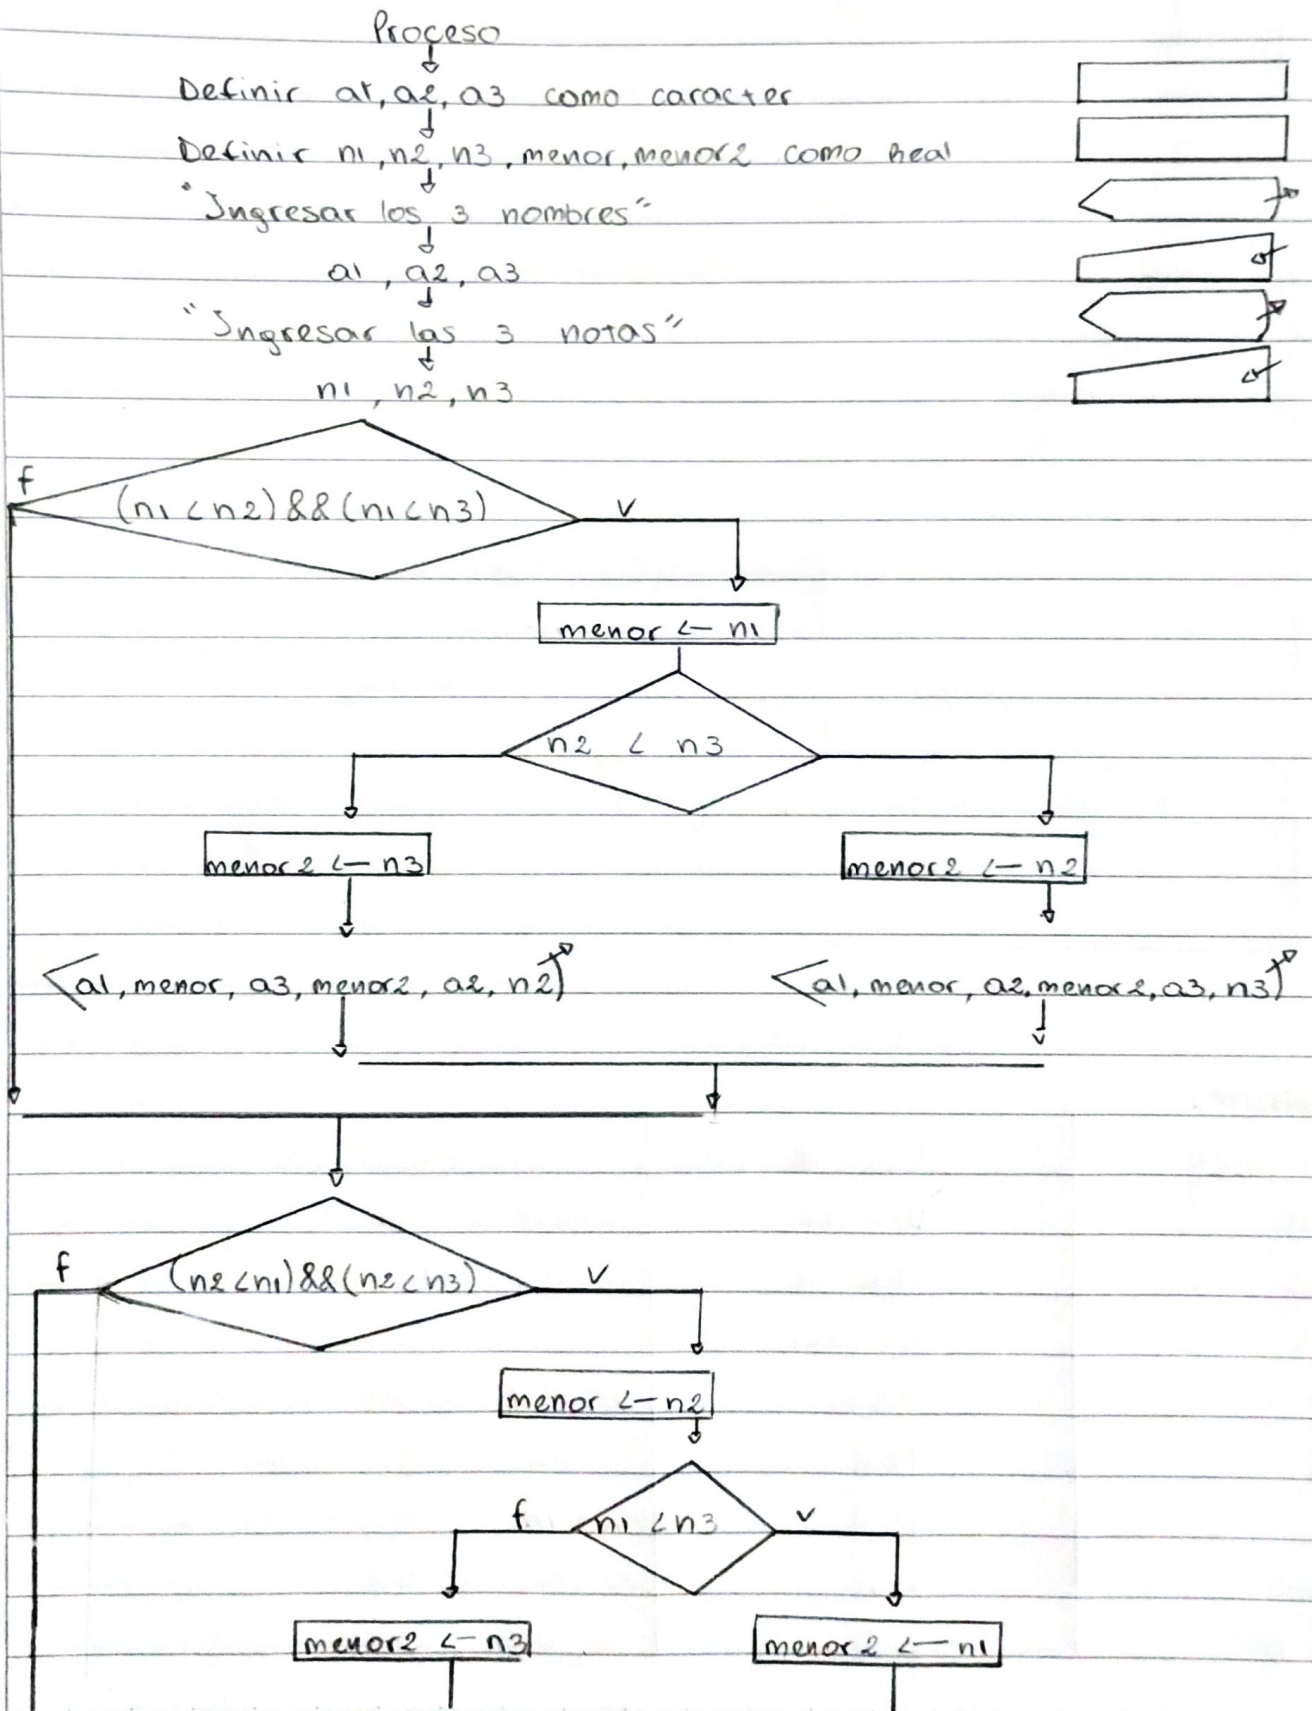 Proceso
Definir a1, a2, a3 como caracter
Definir n1, n2, n3, menor, menor2 como Real
"Ingresar los 3 nombres"
a1, a2, a3
"Ingresar las 3 notas"
n1, n2, n3
f
(n1 < n2) && (n1 < n3)
v
menor <- n1
n2 < n3
menor2 <- n3
menor2 <- n2
a1, menor, a3, menor2, a2, n2
a1, menor, a2, menor2, a3, n3
f
(n2 < n1) && (n2 < n3)
v
menor <- n2
f
n1 < n3
v
menor2 <- n3
menor2 <- n1